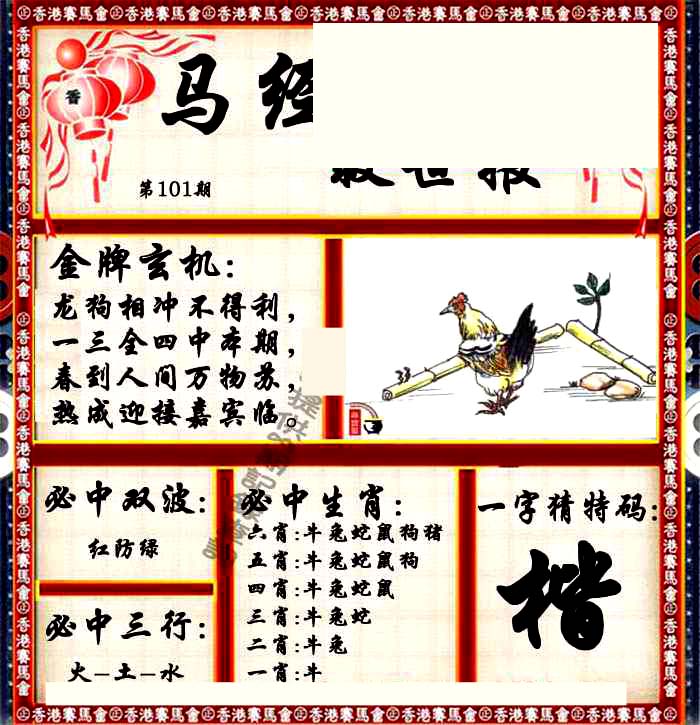 香港賽馬會
马经
救世报
香
第101期
金牌玄机:
龙狗相冲不得利，
一三全四中本期，
春到人间万物苏，
热成迎接嘉宾临。
必中双波:
红防绿
必中三行:
火–土–水
必中生肖:
六肖:牛兔蛇鼠狗猪
五肖:牛兔蛇鼠狗
四肖:牛兔蛇鼠
三肖:牛兔蛇
二肖:牛兔
一肖:牛
一字猜特码:
楷